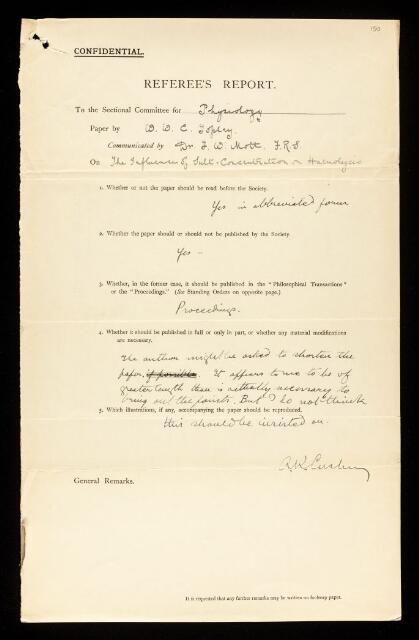 150
CONFIDENTIAL.
REFEREE'S REPORT.
To the Sectional Committee for Physiology
Paper by W. W. C. Topley.
Communicated by Dr F. W. Mott. F.R.S.
On The Influence of Salt-Concentration on Haemolysis
1. Whether or not the paper should be read before the Society.
Yes in abbreviated form
2. Whether the paper should or should not be published by the Society.
Yes –
3. Whether, in the former case, it should be published in the "Philosophical Transactions"
or the "Proceedings." (See Standing Orders on opposite page.)
Proceedings.
4. Whether it should be published in full or only in part, or whether any material modifications
are necessary.
The author might be asked to shorten the
paper, if possible. It appears to me to be of
greater length than is actually necessary to
bring out the points. But I do not think
5. Which illustrations, if any, accompanying the paper should be reproduced.
this should be insisted on.
A.R. Cushny
General Remarks.
It is requested that any further remarks may be written on foolscap paper.